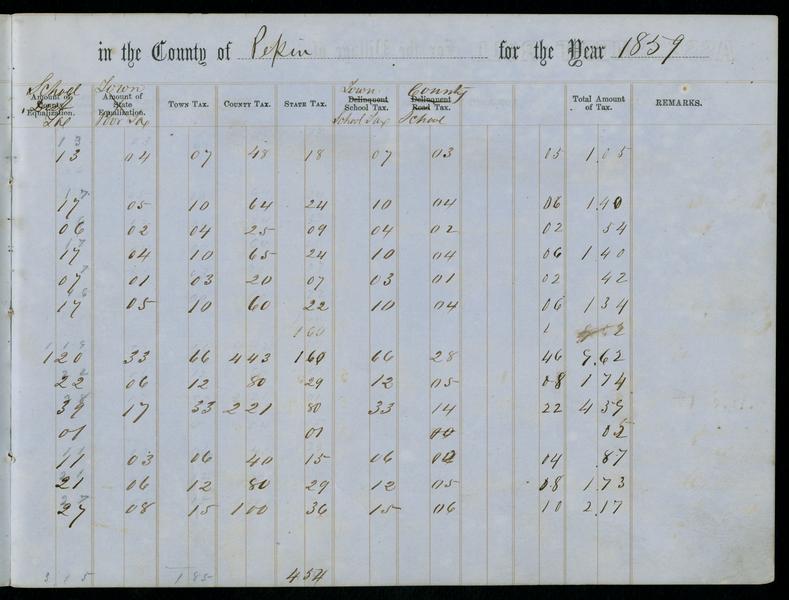 in the County of Pepin for the Year 1859
School Town Town County
Amount of County Equalization. Tax
Amount of State Equalization. Poor Tax
TOWN TAX. COUNTY TAX. STATE TAX.
Delinquent School Tax. School Tax
Delinquent Road Tax. School
Total Amount of Tax. REMARKS.
13 04 07 48 18 07 03 05 1.05
17 05 10 64 24 10 04 06 1.40
06 02 04 25 09 04 02 02 54
17 04 10 65 24 10 04 06 1 40
07 01 03 20 07 03 01 02 42
17 05 10 60 22 10 04 06 1 34
160 1
1 20 33 66 4 43 1 60 66 28 46 9.62
22 06 12 80 29 12 05 08 1 74
39 17 33 2 21 80 33 14 22 4 59
01 01 02
11 03 06 40 15 06 02 04 .87
21 06 12 80 29 12 05 08 1.73
27 08 15 1 00 36 15 06 10 2.17
3 15 1 85 4 54